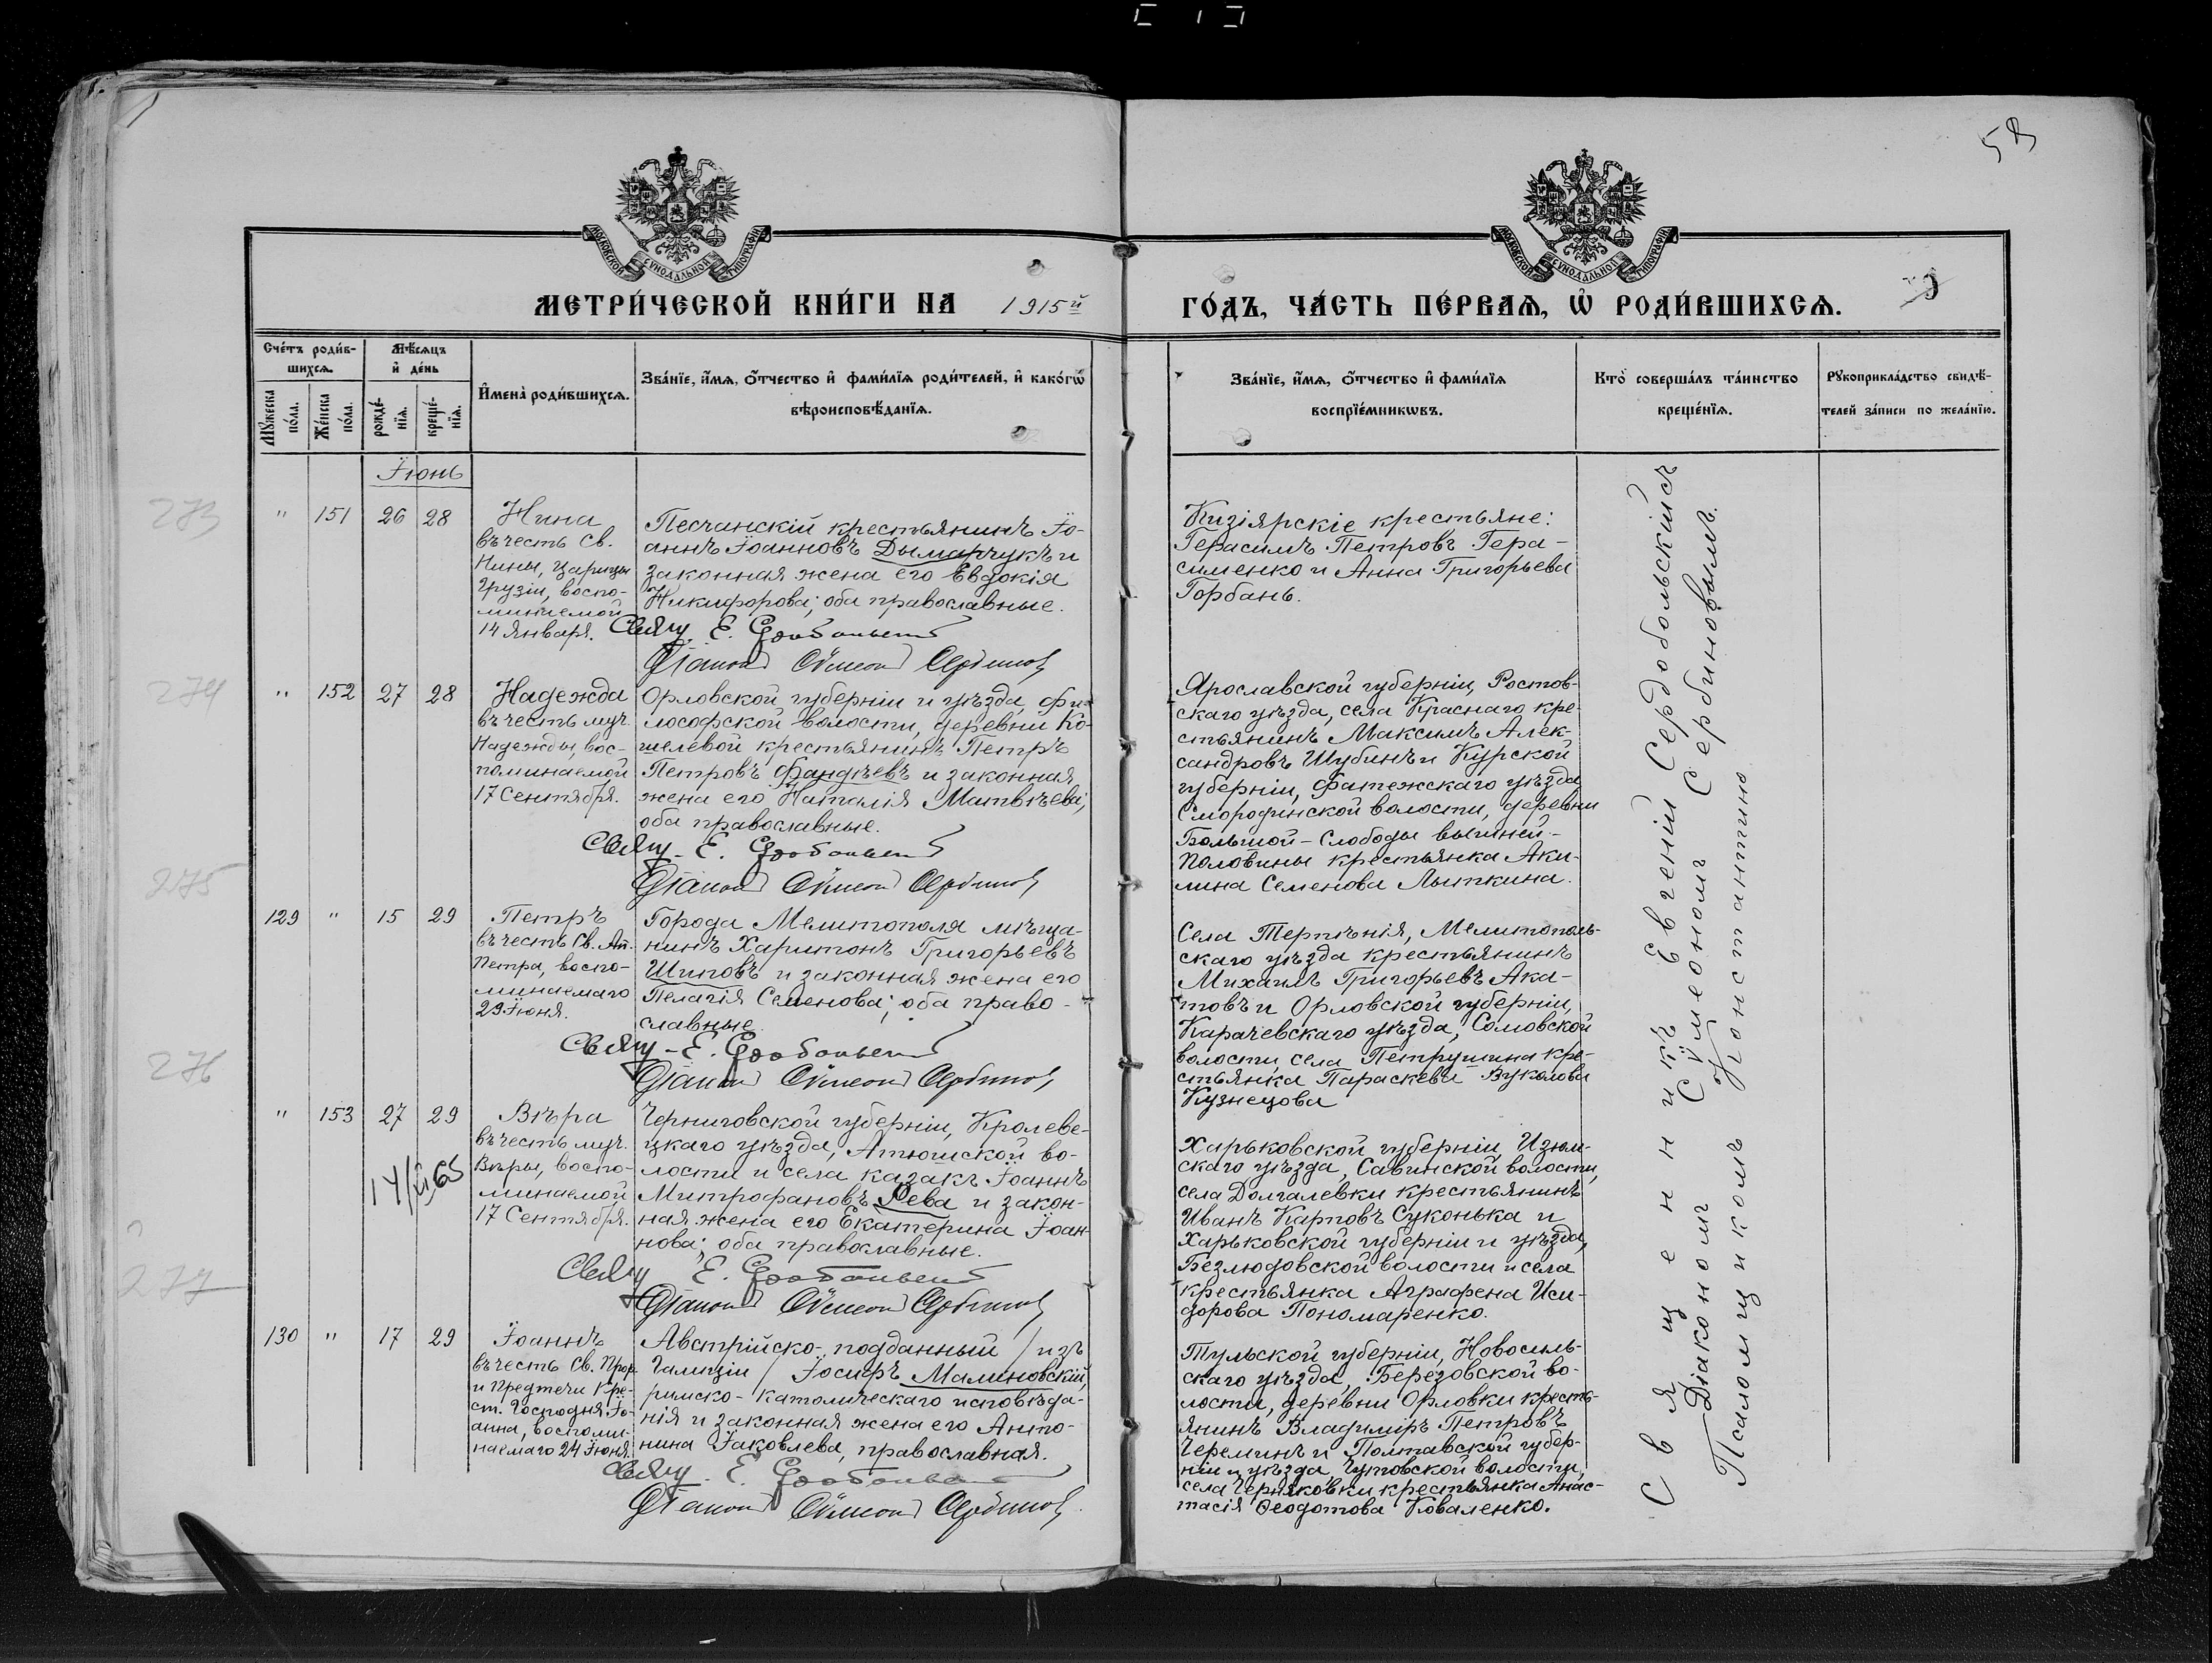 58
МОСКОВСКОЙ СѴНОДАЛЬНОЙ ТИПОГРАФІИ
МОСКОВСКОЙ СѴНОДАЛЬНОЙ ТИПОГРАФІИ
МЕТРИ́ЧЕСКОЙ КНИ́ГИ НА 1915й ГО́ДЪ, ЧА́СТЬ ПЕ́РВАѦ, Ѡ РОДИ́ВШИХСѦ.
Сче́тъ роди́в-
шихсѧ.
Мꙋ́жеска по́ла.
Же́нска по́ла.
Мѣ́сѧцъ
и҆ де́нь
рожде́-
нїѧ.
креще́-
нїѧ.
И҆мена̀ роди́вшихсѧ.
Зва́нїе, и҆́мѧ, ѻ҆́тчество и҆ фами́лїѧ роди́телей, и҆ како́гѡ
вѣроисповѣ́данїѧ.
Зва́нїе, и҆́мѧ, ѻ҆́тчество и҆ фами́лїѧ
воспрїе́мникѡвъ.
Кто̀ соверша́лъ та́инство
креще́нїѧ.
Рꙋкоприкла́дство свидѣ́-
телей за́писи по жела́нїю.
Їюнь
273
" 151 26 28
Нина
въ честь Св.
Нины, царицы
Грузіи, воспо-
минаемой
14 Января.
Песчанскій крестьянинъ Їо-
аннъ Їоанновъ Дымарчукъ и
законная жена его Евдокія
Никифорова; оба православные.
Свящ. Е. Сердобольскій
Діаконъ Сѵмеонъ Сербиновъ
Кизіярскіе крестьяне:
Герасимъ Петровъ Гера-
сименко и Анна Григорьева
Горбань.
274
" 152 27 28
Надежда
въ честь муч.
Надежды, вос-
поминаемой
17 Сентября.
Орловской губерніи и уѣзда, Фи-
лософской волости, деревни Ко-
шелевой крестьянинъ Петръ
Петровъ Фандѣевъ и законная
жена его Наталія Матвѣева;
оба православные.
Свящ. Е. Сердобольскій
Діаконъ Сѵмеонъ Сербиновъ
Ярославской губерніи, Ростов-
скаго уѣзда, села Краснаго кре-
стьянинъ Максимъ Алек-
сандровъ Шубинъ и Курской
губерніи, Фатежскаго уѣзда,
Смородинской волости, деревни
Большой-Слободы вышней-
половины крестьянка Аки-
лина Семенова Лыткина.
275
129 " 15 29
Петръ
въ честь Св. Ап.
Петра, воспо-
минаемаго
29 Їюня.
Города Мелитополя мѣща-
нинъ Харитонъ Григорьевъ
Шиповъ и законная жена его
Пелагія Семенова; оба право-
славные.
Свящ. Е. Сердобольскій
Діаконъ Сѵмеонъ Сербиновъ
Села Терпѣнія, Мелитополь-
скаго уѣзда крестьянинъ
Михаилъ Григорьевъ Ака-
товъ и Орловской губерніи,
Карачевскаго уѣзда, Сомовской
волости, села Петрушина кре-
стьянка Параскева Вуколова
Кузнецова
276
" 153 27 29
14/II 65
Вѣра
въ честь муч.
Вѣры, воспо-
минаемой
17 Сентября.
Черниговской губерніи, Кролеве-
цкаго уѣзда, Атюшской во-
лости и села казакъ Їоаннъ
Митрофановъ Лева и закон-
ная жена его Екатерина Їоан-
нова; оба православные.
Свящ. Е. Сердобольскій
Діаконъ Сѵмеонъ Сербиновъ
Харьковской губерніи, Изюм-
скаго уѣзда, Савинской волости,
села Долгалевки крестьянинъ
Иванъ Карповъ Суконька и
Харьковской губерніи и уѣзда,
Безлюдовской волости и села
крестьянка Аграфена Иси-
дорова Пономаренко.
277
130 " 17 29
Їоаннъ
въ честь Св. Прор.
и Предтечи Кре-
ст. Господня Їо-
анна, воспоми-
наемаго 24 Їюня.
Австрійско-подданный /изъ
Галиціи/ Їосифъ Малиновскій,
римско-католическаго исповѣда-
нія и законная жена его Анто-
нина Їаковлева, православная.
Свящ. Е. Сердобольскій
Діаконъ Сѵмеонъ Сербиновъ.
Тульской губерніи, Новосиль-
скаго уѣзда, Березовской во-
лости, деревни Орловки кресть-
янинъ Владиміръ Петровъ
Череминъ и Полтавской губер-
ніи и уѣзда, Чутовской волости,
села Черняковки крестьянка Анас-
тасія Ѳеодотова Коваленко.
Священникъ Евгеній Сердобольскій съ
Діакономъ Сѵмеономъ Сербиновымъ.
Псаломщикомъ Константино